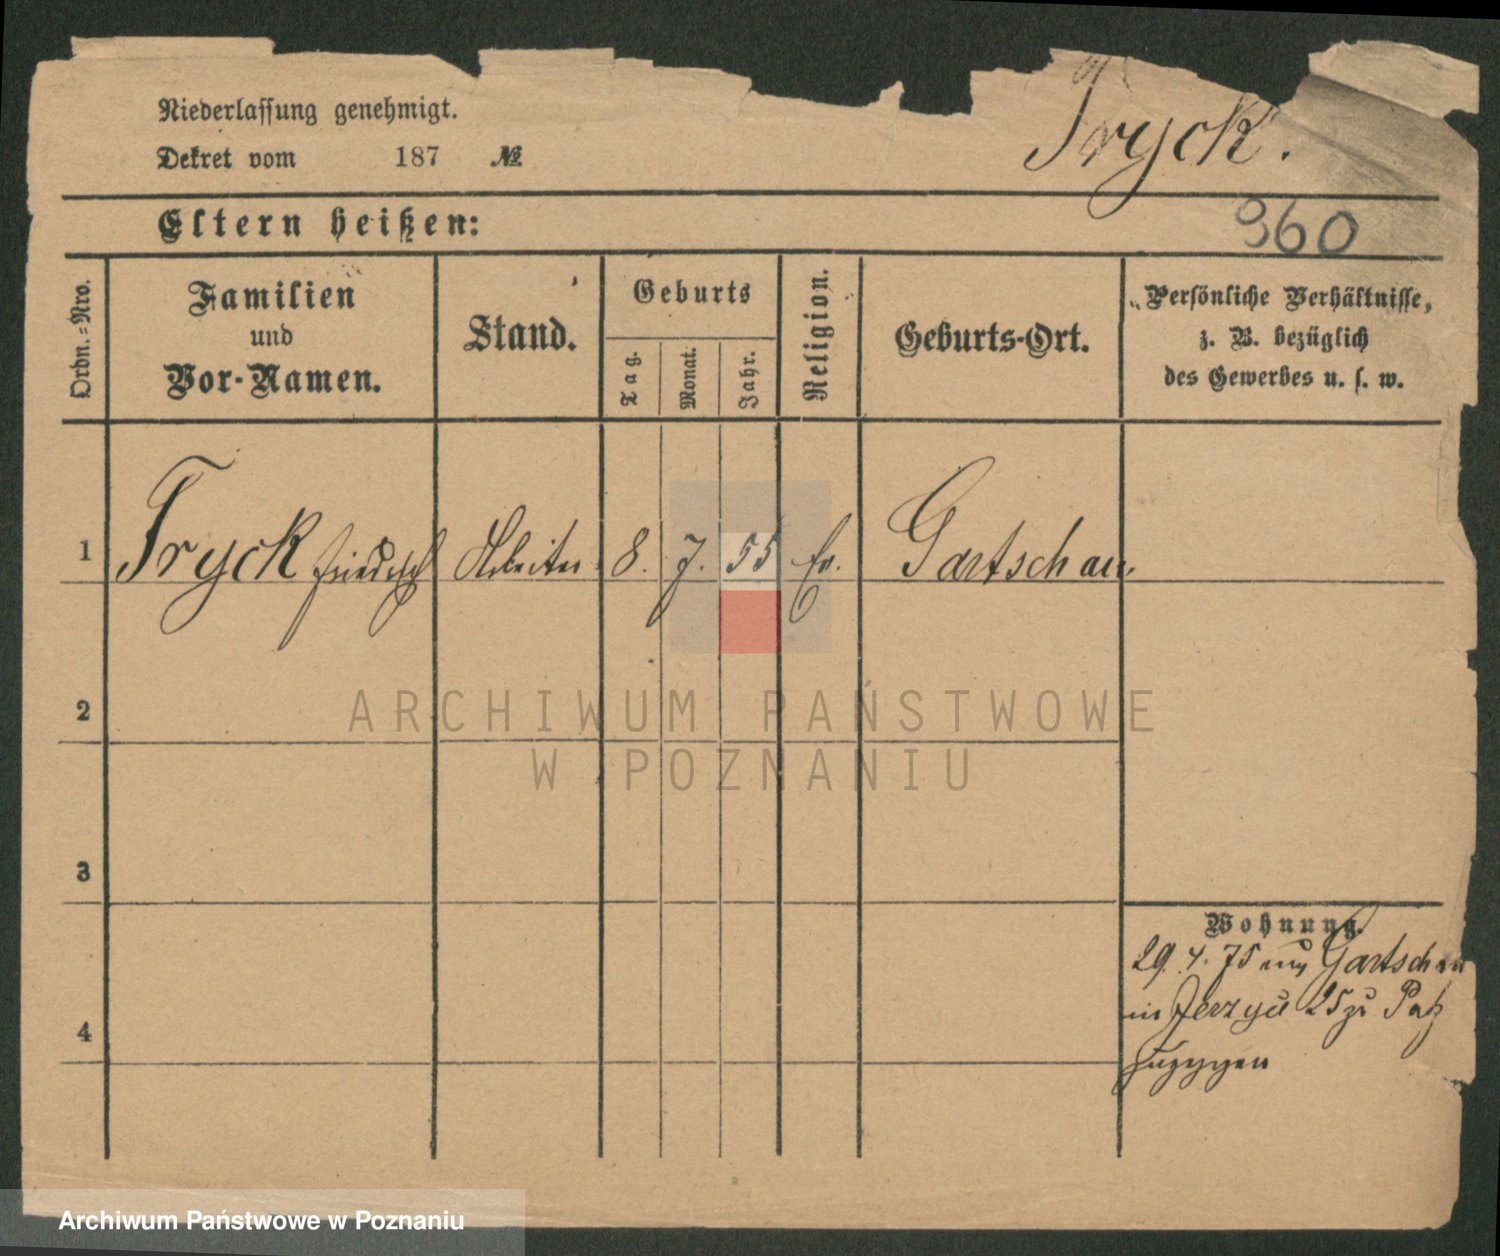 Niederlassung genehmigt.
Dekret vom 187 №
Tryck.
Eltern heißen:
960
Ordn.=Nro.
Familien
und
Vor-Namen.
Stand.
Geburts
Tag.
Monat.
Jahr.
Religion.
Geburts-Ort.
Persönliche Verhältnisse,
z. B. bezüglich
des Gewerbes u. s. w.
1 Tryck Friedrich Arbeiter 8. 7. 55 Ev. Gartschau
2
3
4
Wohnung.
29. 4. 75 aus Gartschau
in Jerzyce 25 zu
zugezogen
ARCHIWUM PAŃSTWOWE
W POZNANIU
Archiwum Państwowe w Poznaniu